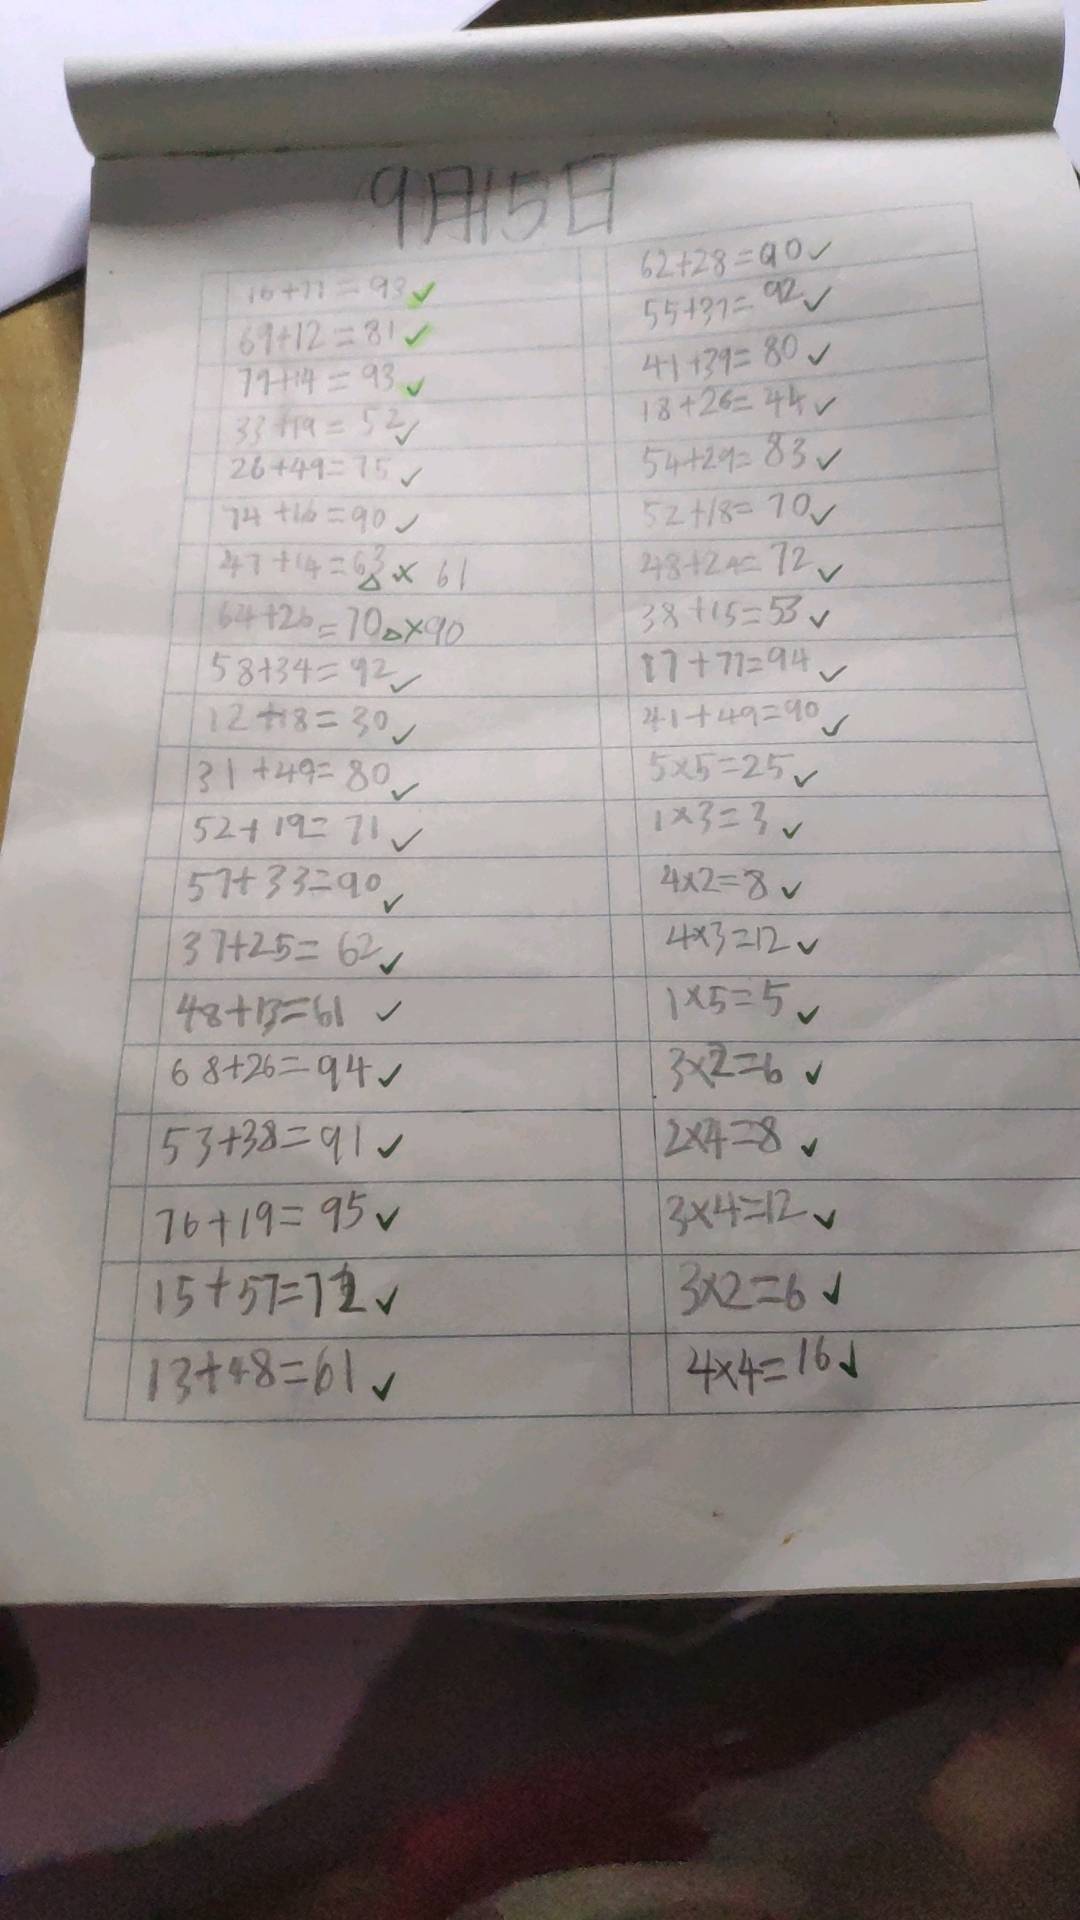 9月15日
16+77=93✓
69+12=81✓
79+14=93✓
33+19=52✓
26+49=75✓
74+16=90✓
47+14=63△× 61
64+26=70△×90
58+34=92✓
12+18=30✓
31+49=80✓
52+19=71✓
57+33=90✓
37+25=62✓
48+13=61✓
68+26=94✓
53+38=91✓
76+19=95✓
15+57=72✓
13+48=61✓
62+28=90✓
55+37=92✓
41+39=80✓
18+26=44✓
54+29=83✓
52+18=70✓
48+24=72✓
38+15=53✓
17+77=94✓
41+49=90✓
5×5=25✓
1×3=3✓
4×2=8✓
4×3=12✓
1×5=5✓
3×2=6✓
2×4=8✓
3×4=12✓
3×2=6✓
4×4=16✓